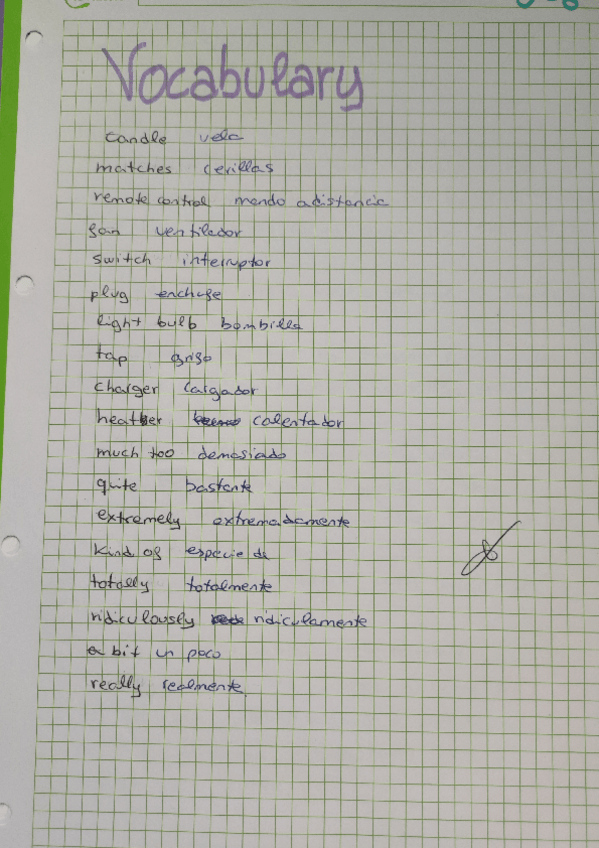 Vocabulary
candle vela
matches cerillas
remote control mando a distancia
fan ventilador
switch interruptor
plug enchufe
light bulb bombilla
tap grifo
charger cargador
heater calentador
much too demasiado
quite bastante
extremely extremadamente
kind of especie de
totally totalmente
ridiculously ridiculamente
a bit un poco
really realmente